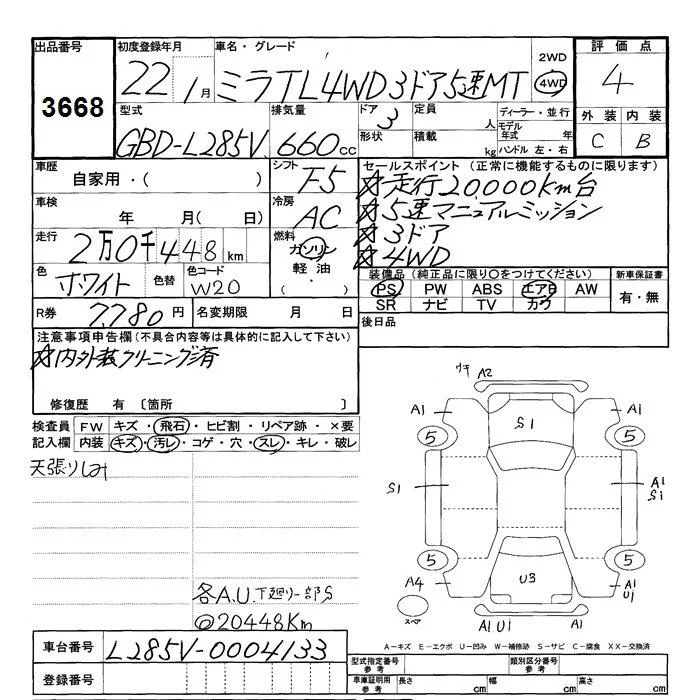 出品番号 初度登録年月 車名・グレード 評価点
3668 22年 1月 ミラTL4WD3ドア5速MT 2WD 4WD 4
型式 排気量 ドア 定員 ディーラー・並行 外装 内装
GBD-L285V 660cc 3 人 モデル年式 年 C B
形状 積載 kg ハンドル 左・右
車歴 シフト セールスポイント (正常に機能するものに限ります)
自家用・( ) F5 ☆走行20000km台
車検 冷房 ☆5速マニュアルミッション
年 月( 日) AC ☆3ドア
走行 燃料 ☆4WD
2万0千448km ガソリン
色 色替 色コード 軽油・
ホワイト W20 ( )
装備品 (純正品に限り〇をつけてください) 新車保証書
PS PW ABS エアB AW 有・無
SR ナビ TV カワ
R券 7,780円 名変期限 月 日
後日品
注意事項申告欄(不具合内容等は具体的に記入して下さい)
☆内外装クリーニング済
修復歴 有〔箇所 〕
検査員 FW キズ・飛石・ヒビ割・リペア跡・×要
記入欄 内装 キズ・汚レ・コゲ・穴・スレ・キレ・破レ
天張りしみ
ウキ A2
A1 S1 A1
5 5
S1 A1
S1
5 5
A4 U3 A1
U1
スペア A1 U1 A1
各A.U.下廻り一部S
@20448Km
A-キズ E-エクボ U-凹み W-補修跡 S-サビ C-腐食 XX-交換済
車台番号 L285V-0004133
登録番号
型式指定番号 参考 類別区分番号 参考
車庫証明用 参考 長さ cm 幅 cm 高さ cm